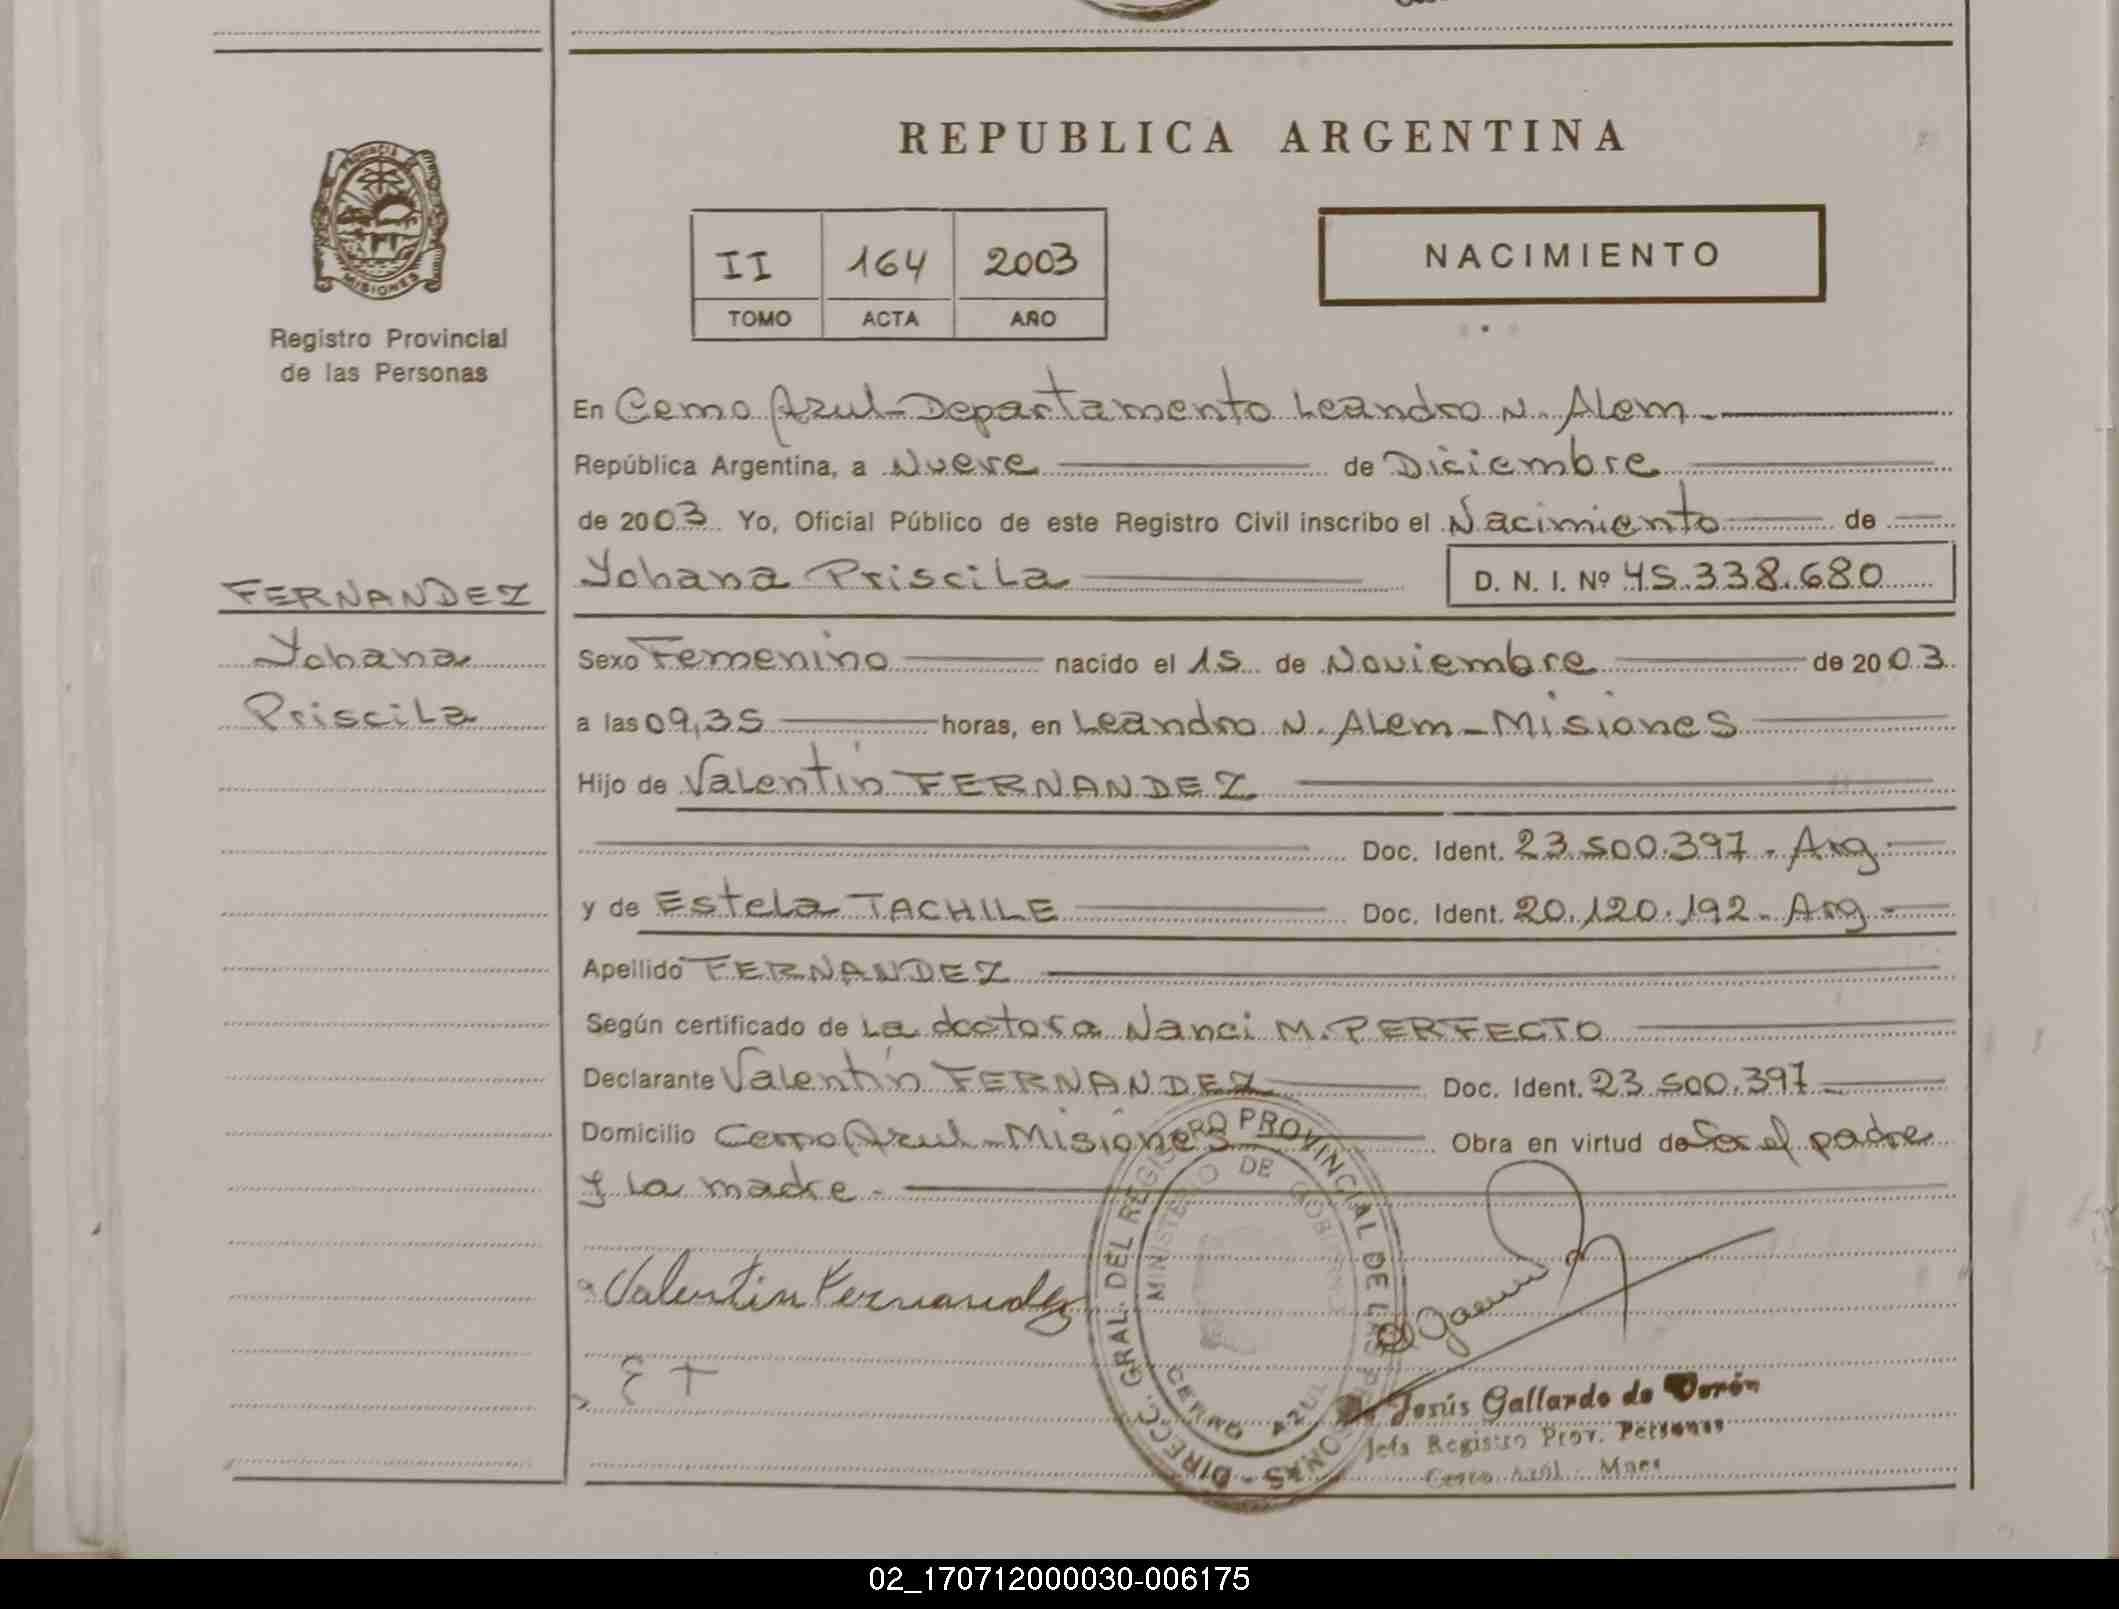 REPUBLICA ARGENTINA
PROVINCIA
MISIONES
Registro Provincial
de las Personas
II 164 2003
TOMO ACTA AÑO
NACIMIENTO
En Cerro Azul-Departamento Leandro N. Alem-
República Argentina, a Nueve de Diciembre
de 2003 Yo, Oficial Público de este Registro Civil inscribo el Nacimiento de
Yohana Priscila D. N. I. Nº 45.338.680
FERNANDEZ
Yohana
Priscila
Sexo Femenino nacido el 15 de Noviembre de 2003
a las 09,35 horas, en Leandro N. Alem-Misiones
Hijo de Valentín FERNANDEZ
Doc. Ident. 23.500.397- Arg
y de Estela TACHILE Doc. Ident. 20.120.192- Arg-
Apellido FERNANDEZ
Según certificado de La doctora Nanci M. PERFECTO
Declarante Valentín FERNANDEZ Doc. Ident. 23.500.397
Domicilio Cerro Azul-Misiones Obra en virtud de Ser el padre
y la madre.-
Valentin Fernandez
E T
DIRECC. GRAL. DEL REGISTRO PROVINCIAL DE LAS PERSONAS -
MINISTERIO DE GOBIERNO
CERRO AZUL
Jesús Gallardo de Verón
Jefa Registro Prov. Personas
Cerro Azul - Mnes
02_170712000030-006175